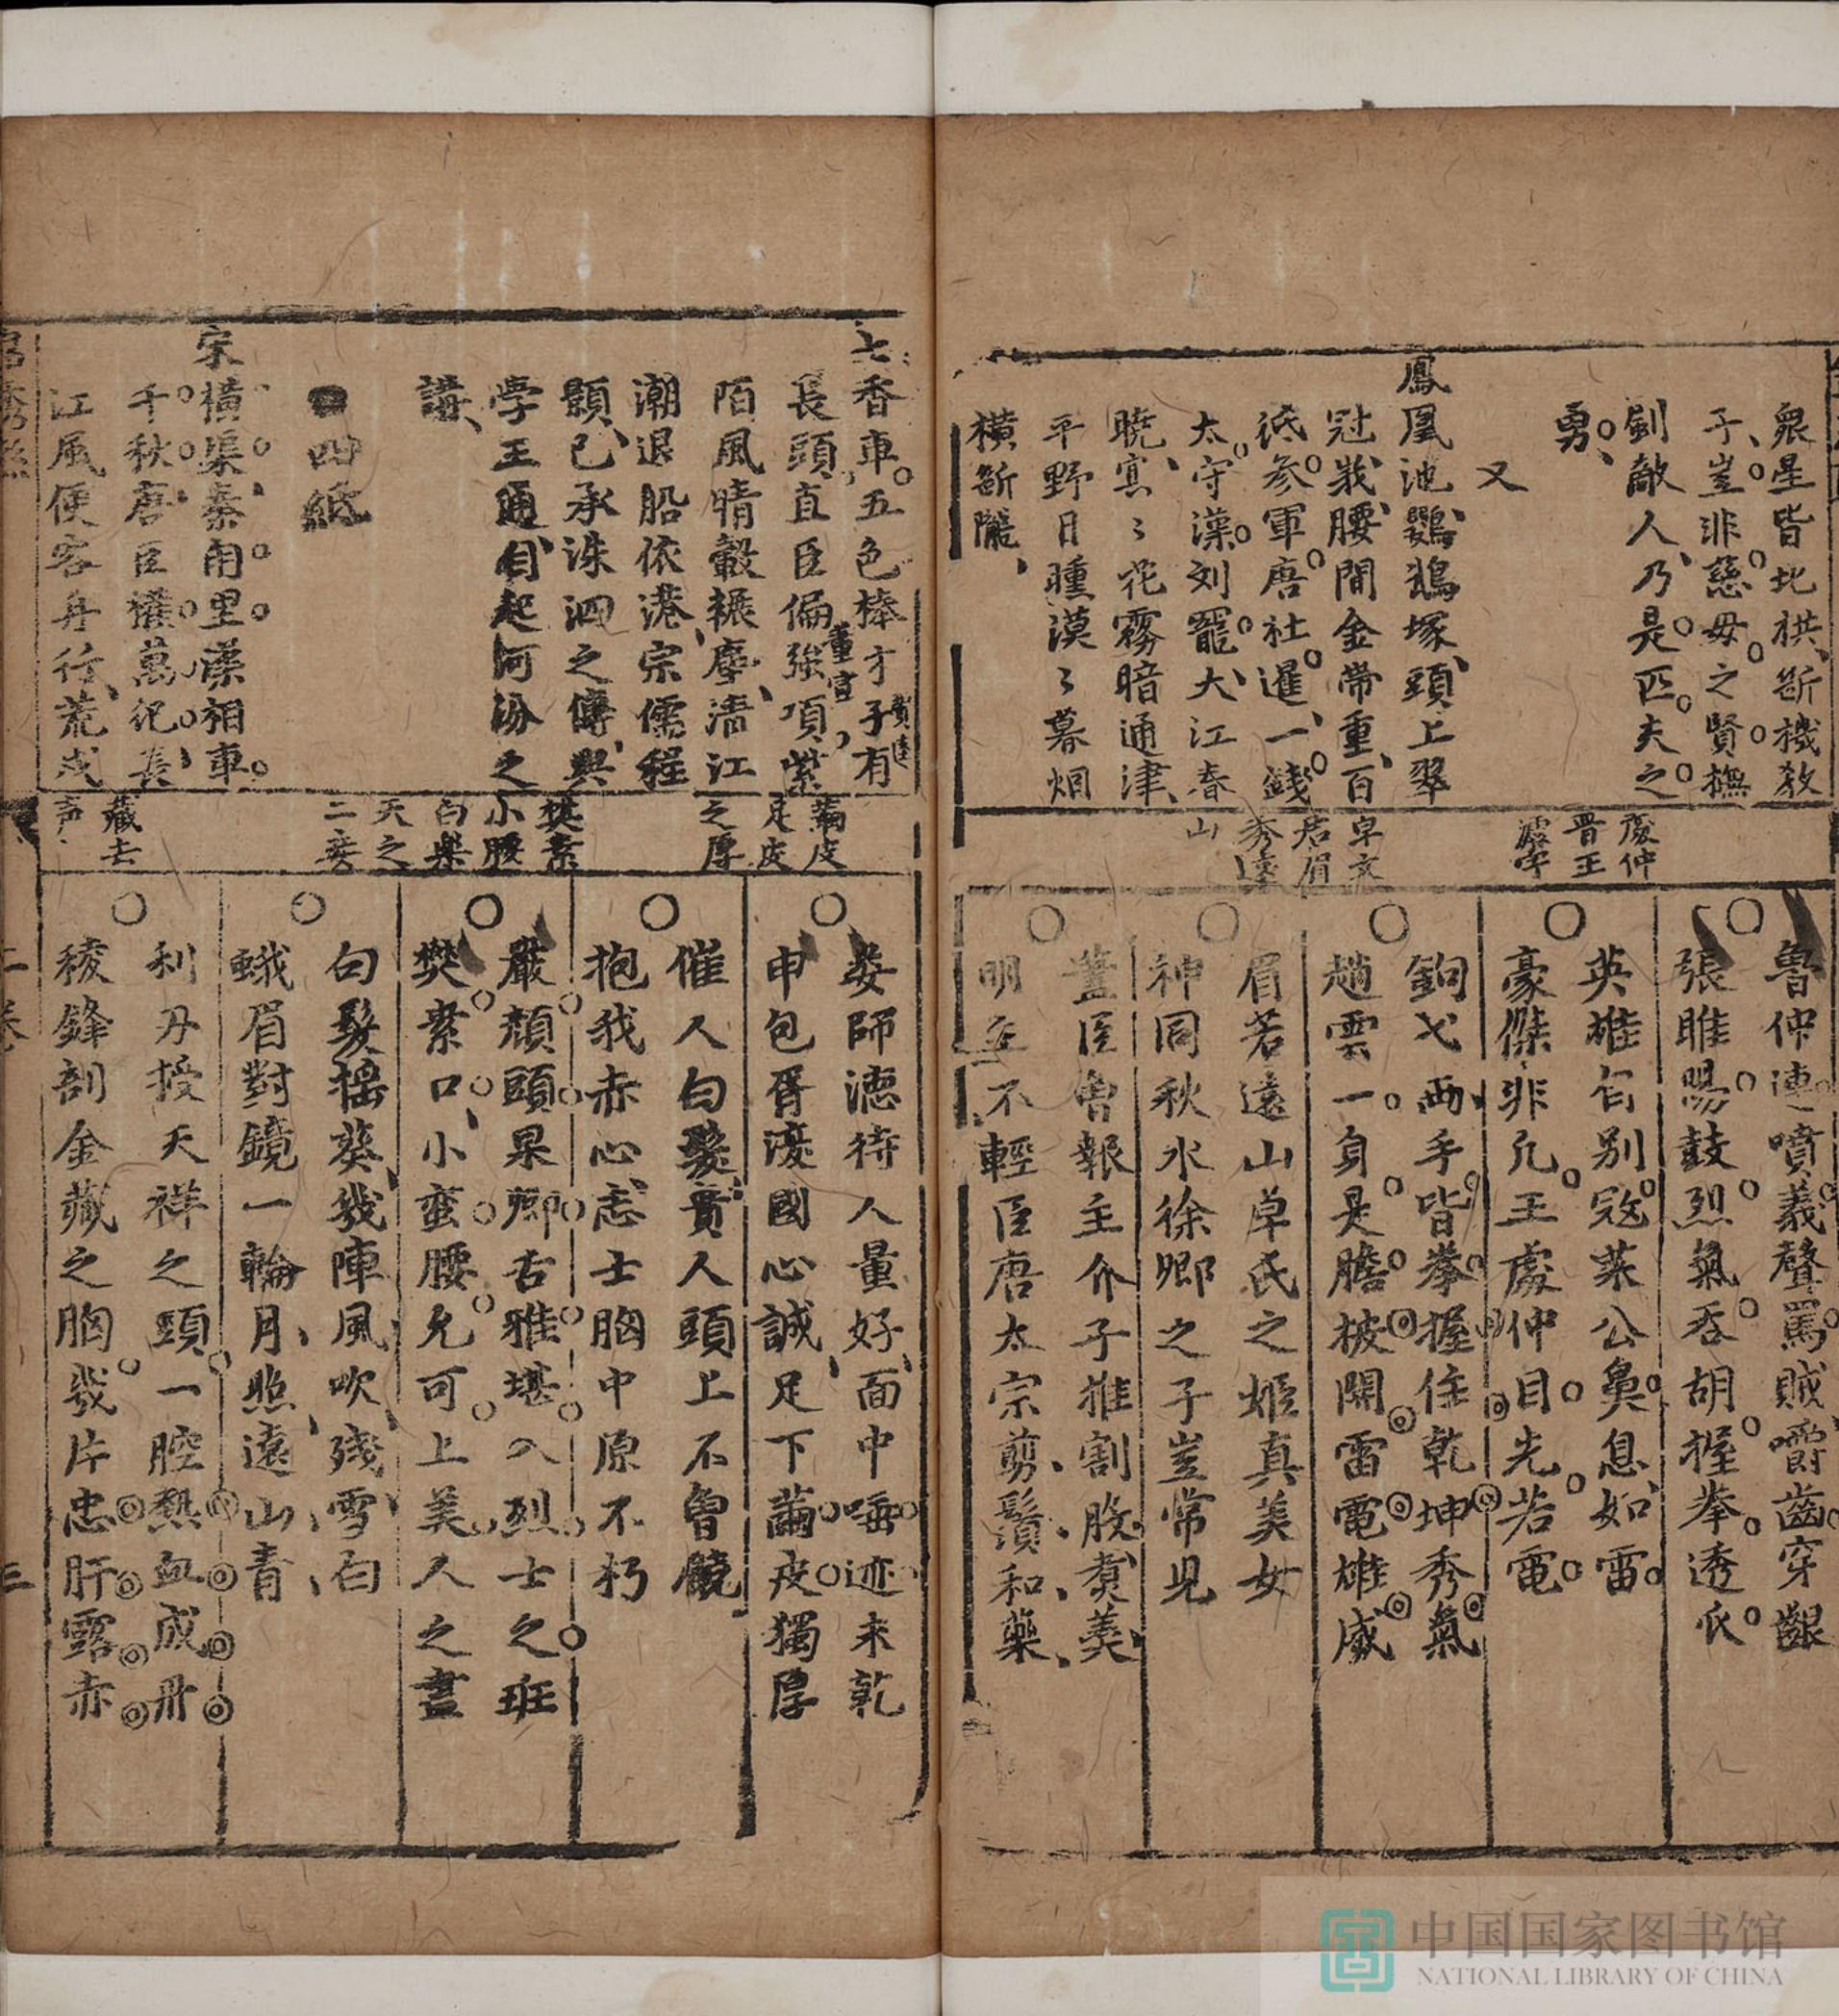 衆星皆北拱、斷機教
子、豈非慈母之賢撫
劍敵人、乃是匹夫之
勇、
又
鳳凰池、鸚鵡塚、頭上翠
冠戟、腰間金帶重、百
泜參軍唐社暹、一錢
太守漢刘寵、大江春
曉、冥〻花霧暗通津、
平野日曛漠〻暮烟
橫斷隴、
處仲
晉王
濬字
卓文
君眉
秀遠
山
魯仲連噴義聲罵賊嚼齒穿齦
張睢陽鼓烈氣吞胡握拳透爪
英雄自別冦萊公鼻息如雷
豪傑非凡王處仲目光若電
鉤弋兩手皆拳握住乾坤秀氣
趙雲一身是膽披開雷電雄威
眉若遠山卓氏之姬真美女
神同秋水徐卿之子豈常児
藎臣曾報主介子推割股煑羮
明主不輕臣唐太宗剪鬚和藥、
七香車。五色棒才子有
長頭、直臣偏強項、紫
董宣
陌風晴轂輾塵、清江
潮退船依港、宗儒程
顥、已承洙泗之傳、興
学王通、自起河汾之
講、
四紙
宋橫渠、秦甪里漢相車。
千秋唐臣權萬紀、長
江風便客舟行、荒戍
繭皮
足皮
之厚
樊素
小腰
白樂
天之
二妾
藏去
声
婁師德待人量好、面中唾迹未乾
申包胥濅國心誠、足下繭皮獨厚
催人白髮、貴人頭上不曾饒
抱我赤心、志士胸中原不朽
嚴顏頭杲卿舌雅堪入烈士之班
樊素口、小蛮腰允可上美人之畫
白髮搖葵、幾陣風吹殘雪白
蛾眉對鏡一輪月、照遠山青
利刃授天祥之頭一腔熱血成丹
稜鋒剖金藏之胸幾片忠肝露赤
二卷
三
中国国家图书馆
NATIONAL LIBRARY OF CHINA